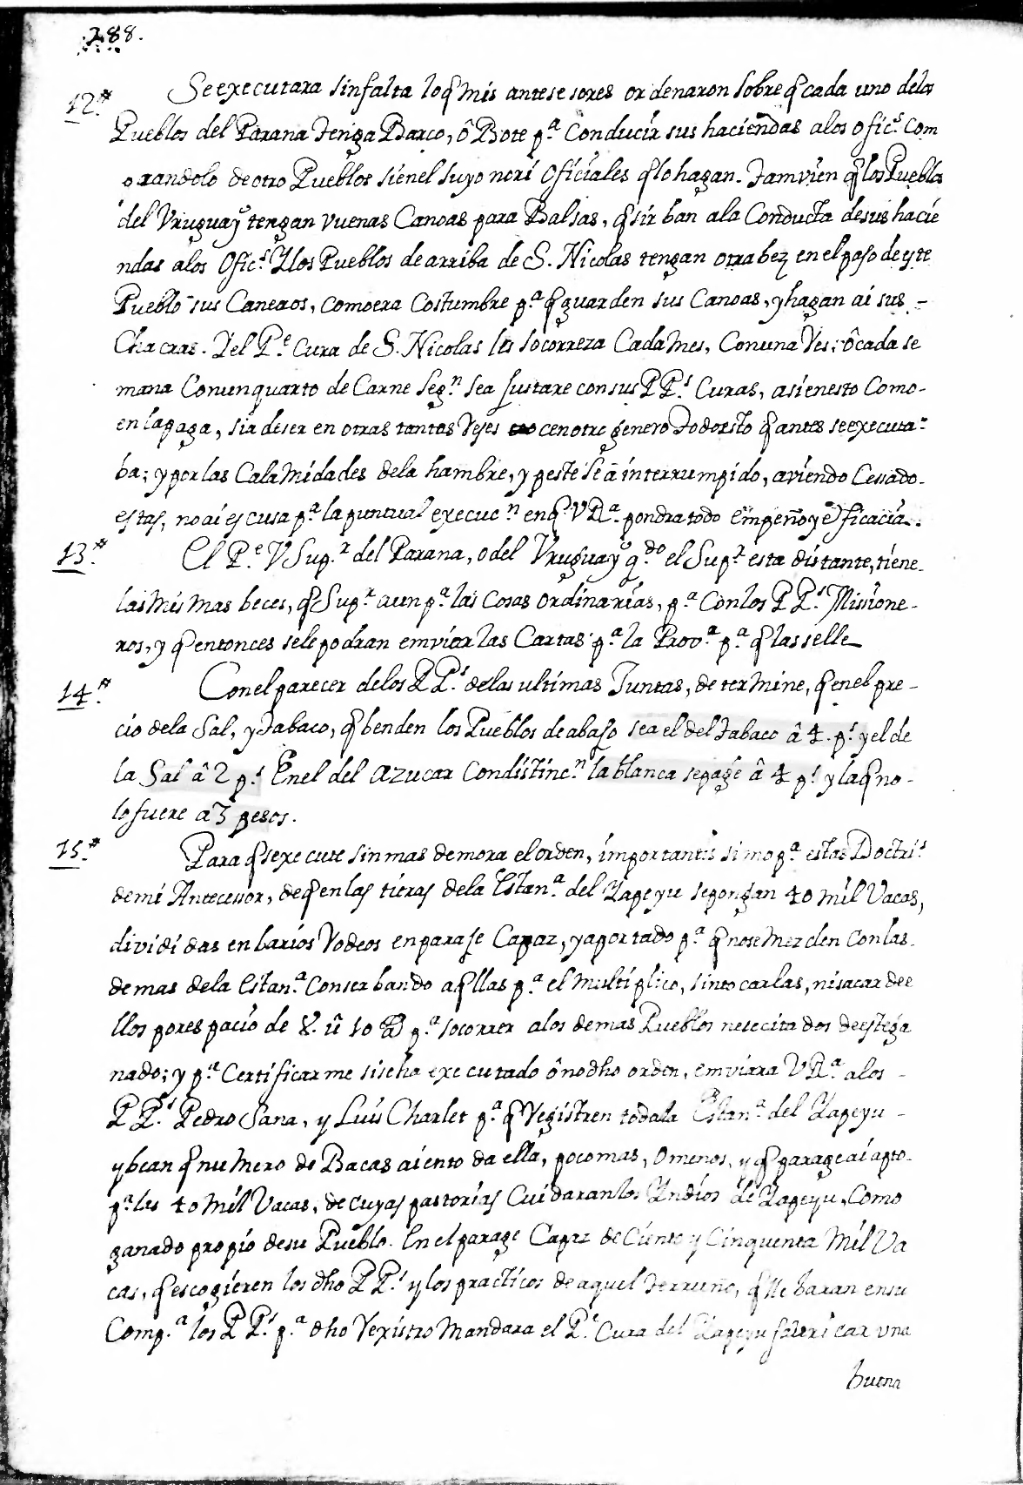 288.
12.ª Se executara sin falta lo q̃ mis antesesores ordenaron sobre q̃ cada uno delos
Pueblos del Parana tenga Barco, ô Bote p.ª Conducir sus haciendas alos ofic.s Com
prandolo de otro Pueblos sienel suyo no ai Oficiales q̃ lo hagan. Tamvien q̃ los Pueblos
del Vruguay tengan vuenas Canoas para Balsas, q̃ sirban ala Conducta desus hacie
ndas alos Ofic.s Y los Pueblos de arriba de S. Nicolas tengan otra bez en el paso de este
Pueblo sus Caneros, como era Costumbre p.ª q̃ guarden sus Canoas, y hagan ai sus -
Chacras. Y el P.e Cura de S. Nicolas les socorrera Cada Mes, Con una Ves, ô cada se
mana Con un quarto de Carne Seg.n sea justare con sus P P.s Curas, asi enesto Como -
en la paga, sia deser en otras tantas Veses o cenotro genero todo esto q̃ antes se executa-
ba; y por las Calamidades dela hambre, y peste se ā interrumpido, aviendo Cesado -
estas, no ai escusa p.ª la puntual execuc.n en q̃ V R.ª pondra todo empeño y eficacia..
13.ª El P.e V Sup.r del Parana, o del Vruguay q.do el Sup.r esta distante, tiene -
las mismas beces, q̃ Sup.r aun p.ª las Cosas ordinarias, p.ª Con los P P.s Misione -
ros, y q̃ entonces sele podran emviar las Cartas p.ª la Prov.ª p.ª q̃ las selle
14.ª Con el parecer delos P P.s delas ultimas Juntas, determine, q̃ en el pre -
cio dela Sal, y tabaco, q̃ benden los Pueblos de abajo sea el del tabaco â 4. p.s y el de
la Sal â 2 p.s En el del azucar Con distinc.n la blanca se page â 4 p.s y la q̃ no -
lo fuere a 3 pesos.
15.ª Para q̃ se execute sin mas demora el orden, importantissimo p.ª estas Doctri.s
de mi Antecessor, de q̃ en las tieras dela Estan.ª del Yapeyu se pongan 40 mil Vacas,
divididas en barios Rodeos en paraje Capaz, y aportado p.ª q̃ nose mezclen con las -
demas dela Estan.ª Conserbando aq̃llas p.ª el multiplico, sin tocarlas, ni sacar dee
llos por espacio de 8. û 10 p.ª socorrer alos demas Pueblos nesecitados de este ga
nado; y p.ª Certificarme si se ha executado ô no dho orden, emviara V R.ª alos -
P P.s Pedro Sana, y Luis Charlet p.ª q̃ Registren toda la Estan.ª del Yapeyu -
y bean q̃ numero de Bacas ai en toda ella, poco mas, o menos, y q̃ parage ai apto -
p.ª las 40 mil Vacas, de cuyas pastorias Cuidaran los Yndios de Yapeyu, como
ganado propio desu Pueblo. En el parage Capaz de Ciento y Cinquenta Mil Va
cas, q̃ escogieren los dho P P.s y los practicos de aquel terruño, q̃ llebaran en su
Comp.ª los P P.s p.ª dho Rexistro Mandara el P.e Cura del Yapeyu fabricar una
buena